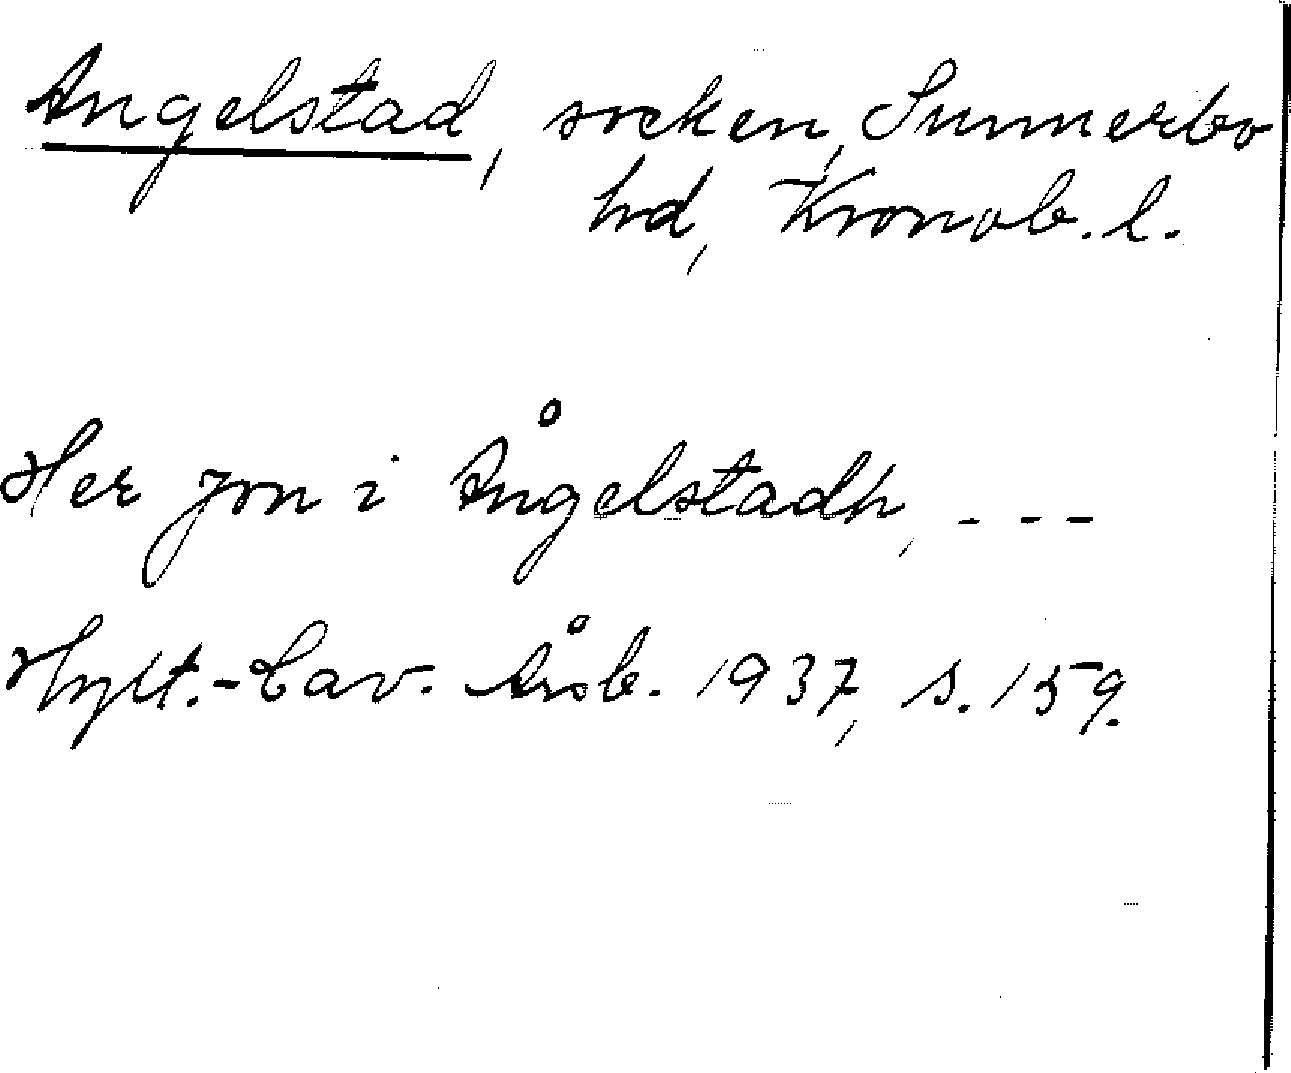 Angelstad, socken, Sunnerbo
hd, Kronob. l.
Her jon i Ångelstadh, - - -
Hylt.-Cav. Årsb. 1937, s. 159.